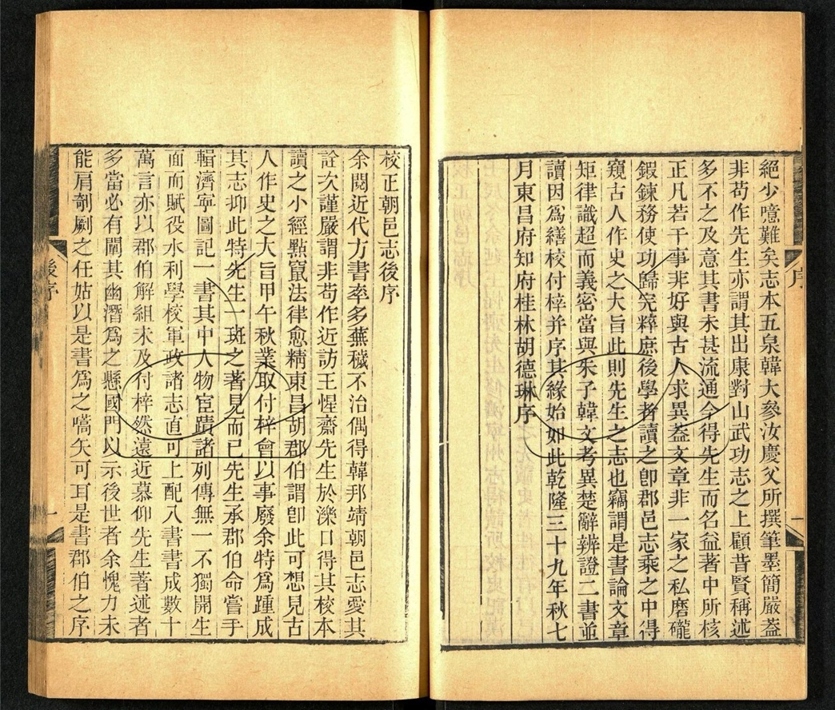 絕少噫難矣志本五泉韓大參汝慶父所撰筆墨簡嚴葢
非苟作先生亦謂其出康對山武功志之上顧昔賢稱述
多不之及意其書未甚流通今得先生而名益著中所核
正凡若干事非好與古人求異葢文章非一家之私磨礲
鍜鍊務使功歸完粹庶後學者讀之卽郡邑志乘之中得
窺古人作史之大旨此則先生之志也竊謂是書論文章
矩律識超而義密當與朱子韓文考異楚辭辨證二書並
讀因爲繕校付梓并序其緣始如此乾隆三十九年秋七
月東昌府知府桂林胡德琳序
序
一
校正朝邑志後序
余閱近代方書率多蕪穢不治偶得韓邦靖朝邑志愛其
詮次謹嚴謂非苟作近訪王惺齋先生於濼口得其校本
讀之小經點竄法律愈精東昌胡郡伯謂卽此可想見古
人作史之大旨甲午秋業取付梓會以事廢余特爲踵成
其志抑此特先生一斑之著見而已先生承郡伯命嘗手
輯濟寧圖記一書其中人物宦蹟諸列傳無一不獨開生
面而賦役水利學校軍政諸志直可上配入書書成數十
萬言亦以郡伯解組未及付梓然遠近慕仰先生著述者
多當必有闡其幽潛爲之懸國門以示後世者余愧力未
能肩剞劂之任姑以是書爲之嚆矢可耳是書郡伯之序
後序
一